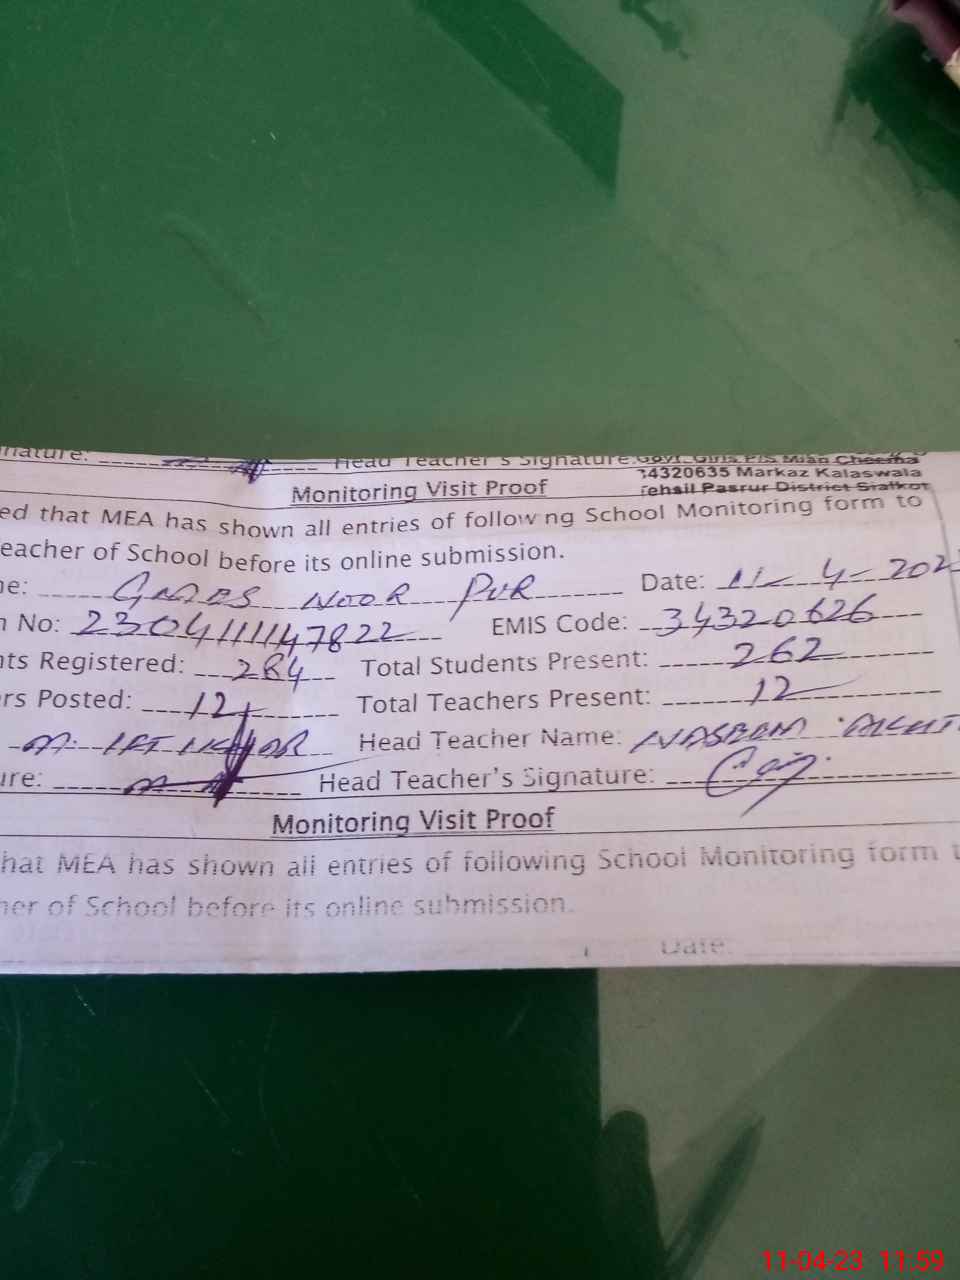 nature: Head Teacher's Signature: Govt. Girls P/S Mian Cheema
34320635 Markaz Kalaswala
Tehsil Pasrur District Sialkot
Monitoring Visit Proof
ed that MEA has shown all entries of following School Monitoring form to
eacher of School before its online submission.
ne: NOOR PUR Date: 11-4-202
n No: EMIS Code: 34320626
nts Registered: 284 Total Students Present: 262
rs Posted: 12 Total Teachers Present: 12
M. IFTIKHAR Head Teacher Name:
ure: Head Teacher's Signature:
Monitoring Visit Proof
hat MEA has shown all entries of following School Monitoring form t
her of School before its online submission.
Date:
11-04-23 11:59